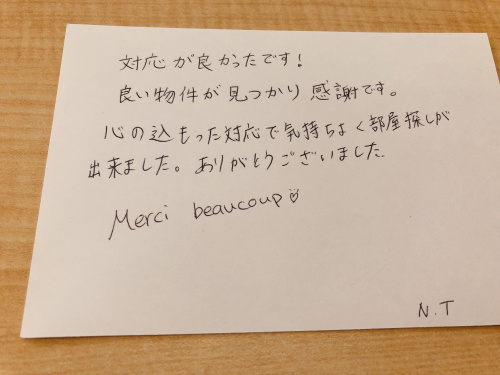 対応が良かったです!
良い物件が見つかり感謝です。
心の込もった対応で気持ちよく部屋探しが
出来ました。ありがとうございました
Merci beaucoup♡
N.T